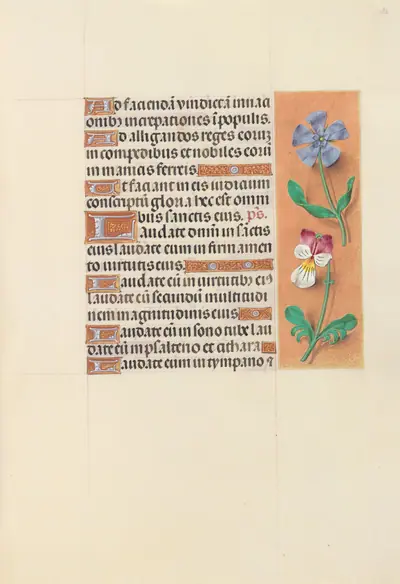 Ad faciendā vindictā in naci
onibȝ increpationes ī populis.
Ad alligandos reges eorūȝ
in compedibus et nobiles eorū
in manicis ferreis.
Et faciant in eis iudicium
conscriptū gloria hec est omni
bus sanctis eius. ps.
Laudate dnm̄ in sāctis
eius laudate eum in firmamen
to virtutis eius.
Laudate eū in virtutibȝ eiꝰ
laudate eū secundū multitudi
nem magnitudinis eius
Laudate eū in sono tube lau
date eū in psalterio et cithara
Laudate eum in tympano ⁊